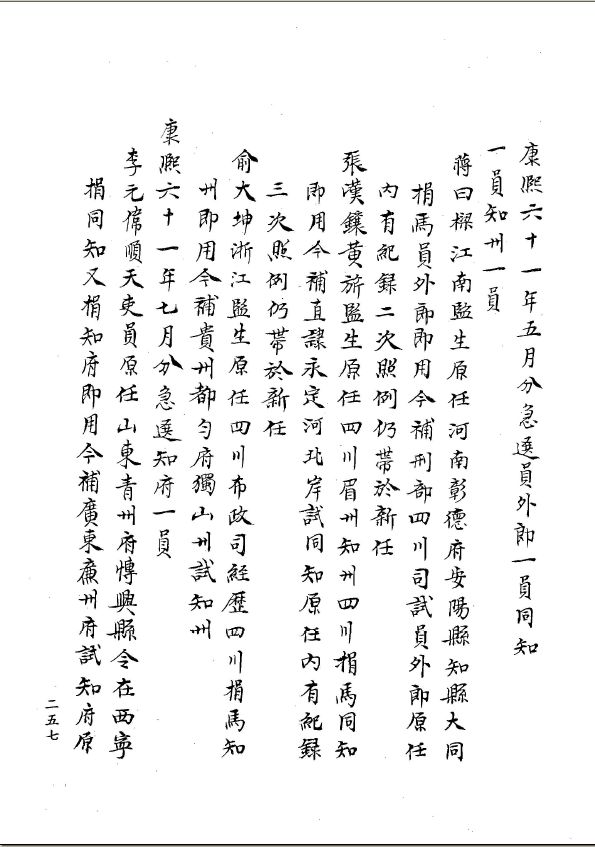 康熙六十一年五月分急選員外郎一員同知
一員知州一員
蔣曰樑江南監生原任河南彰德府安陽縣知縣大同
捐馬員外郎即用今補刑部四川司試員外郎原任
內有紀録二次照例仍帶於新任
張漢鑅黃旂監生原任四川眉州知州四川捐馬同知
即用今補直隸永定河北岸試同知原任內有紀録
三次照例仍帶於新任
俞大坤浙江監生原任四川布政司經歷四川捐馬知
州即用今補貴州都勻府獨山州試知州
康熙六十一年七月分急選知府一員
李元偉順天吏員原任山東青州府博興縣令在西寧
捐同知又捐知府即用今補廣東廉州府試知府原
二五七